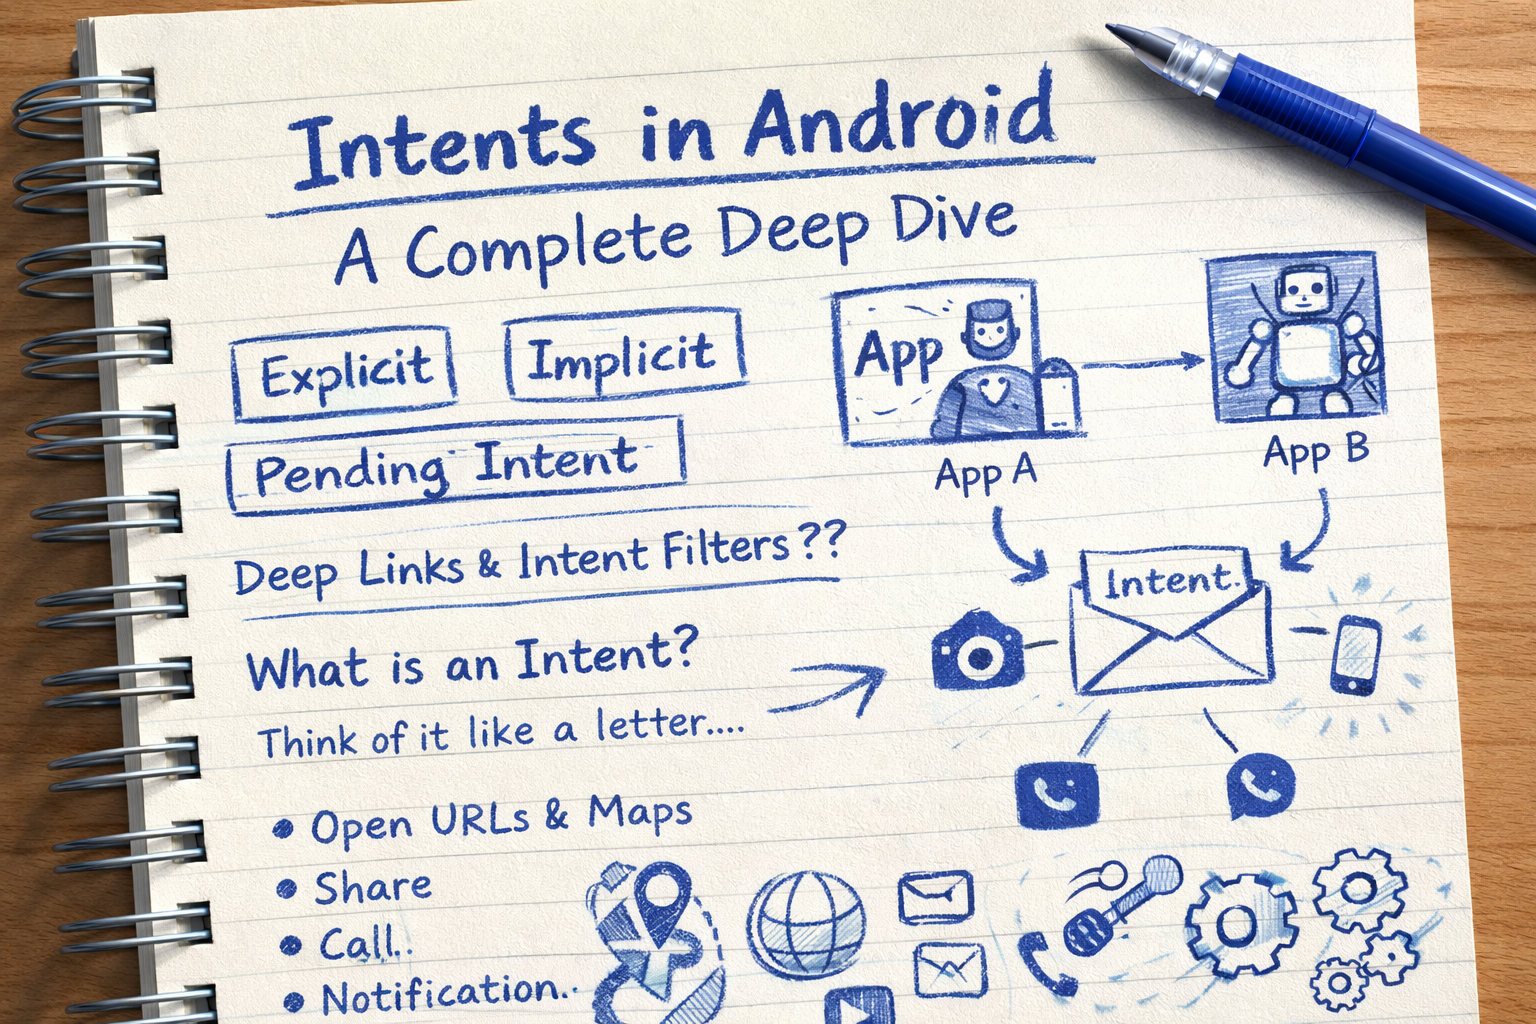 Intents in Android
A Complete Deep Dive
Explicit
Implicit
Pending Intent
App
App A
App B
Deep Links & Intent Filters??
Intent.
What is an Intent?
Think of it like a letter....
• Open URLs & Maps
• Share
• Call..
• Notification..